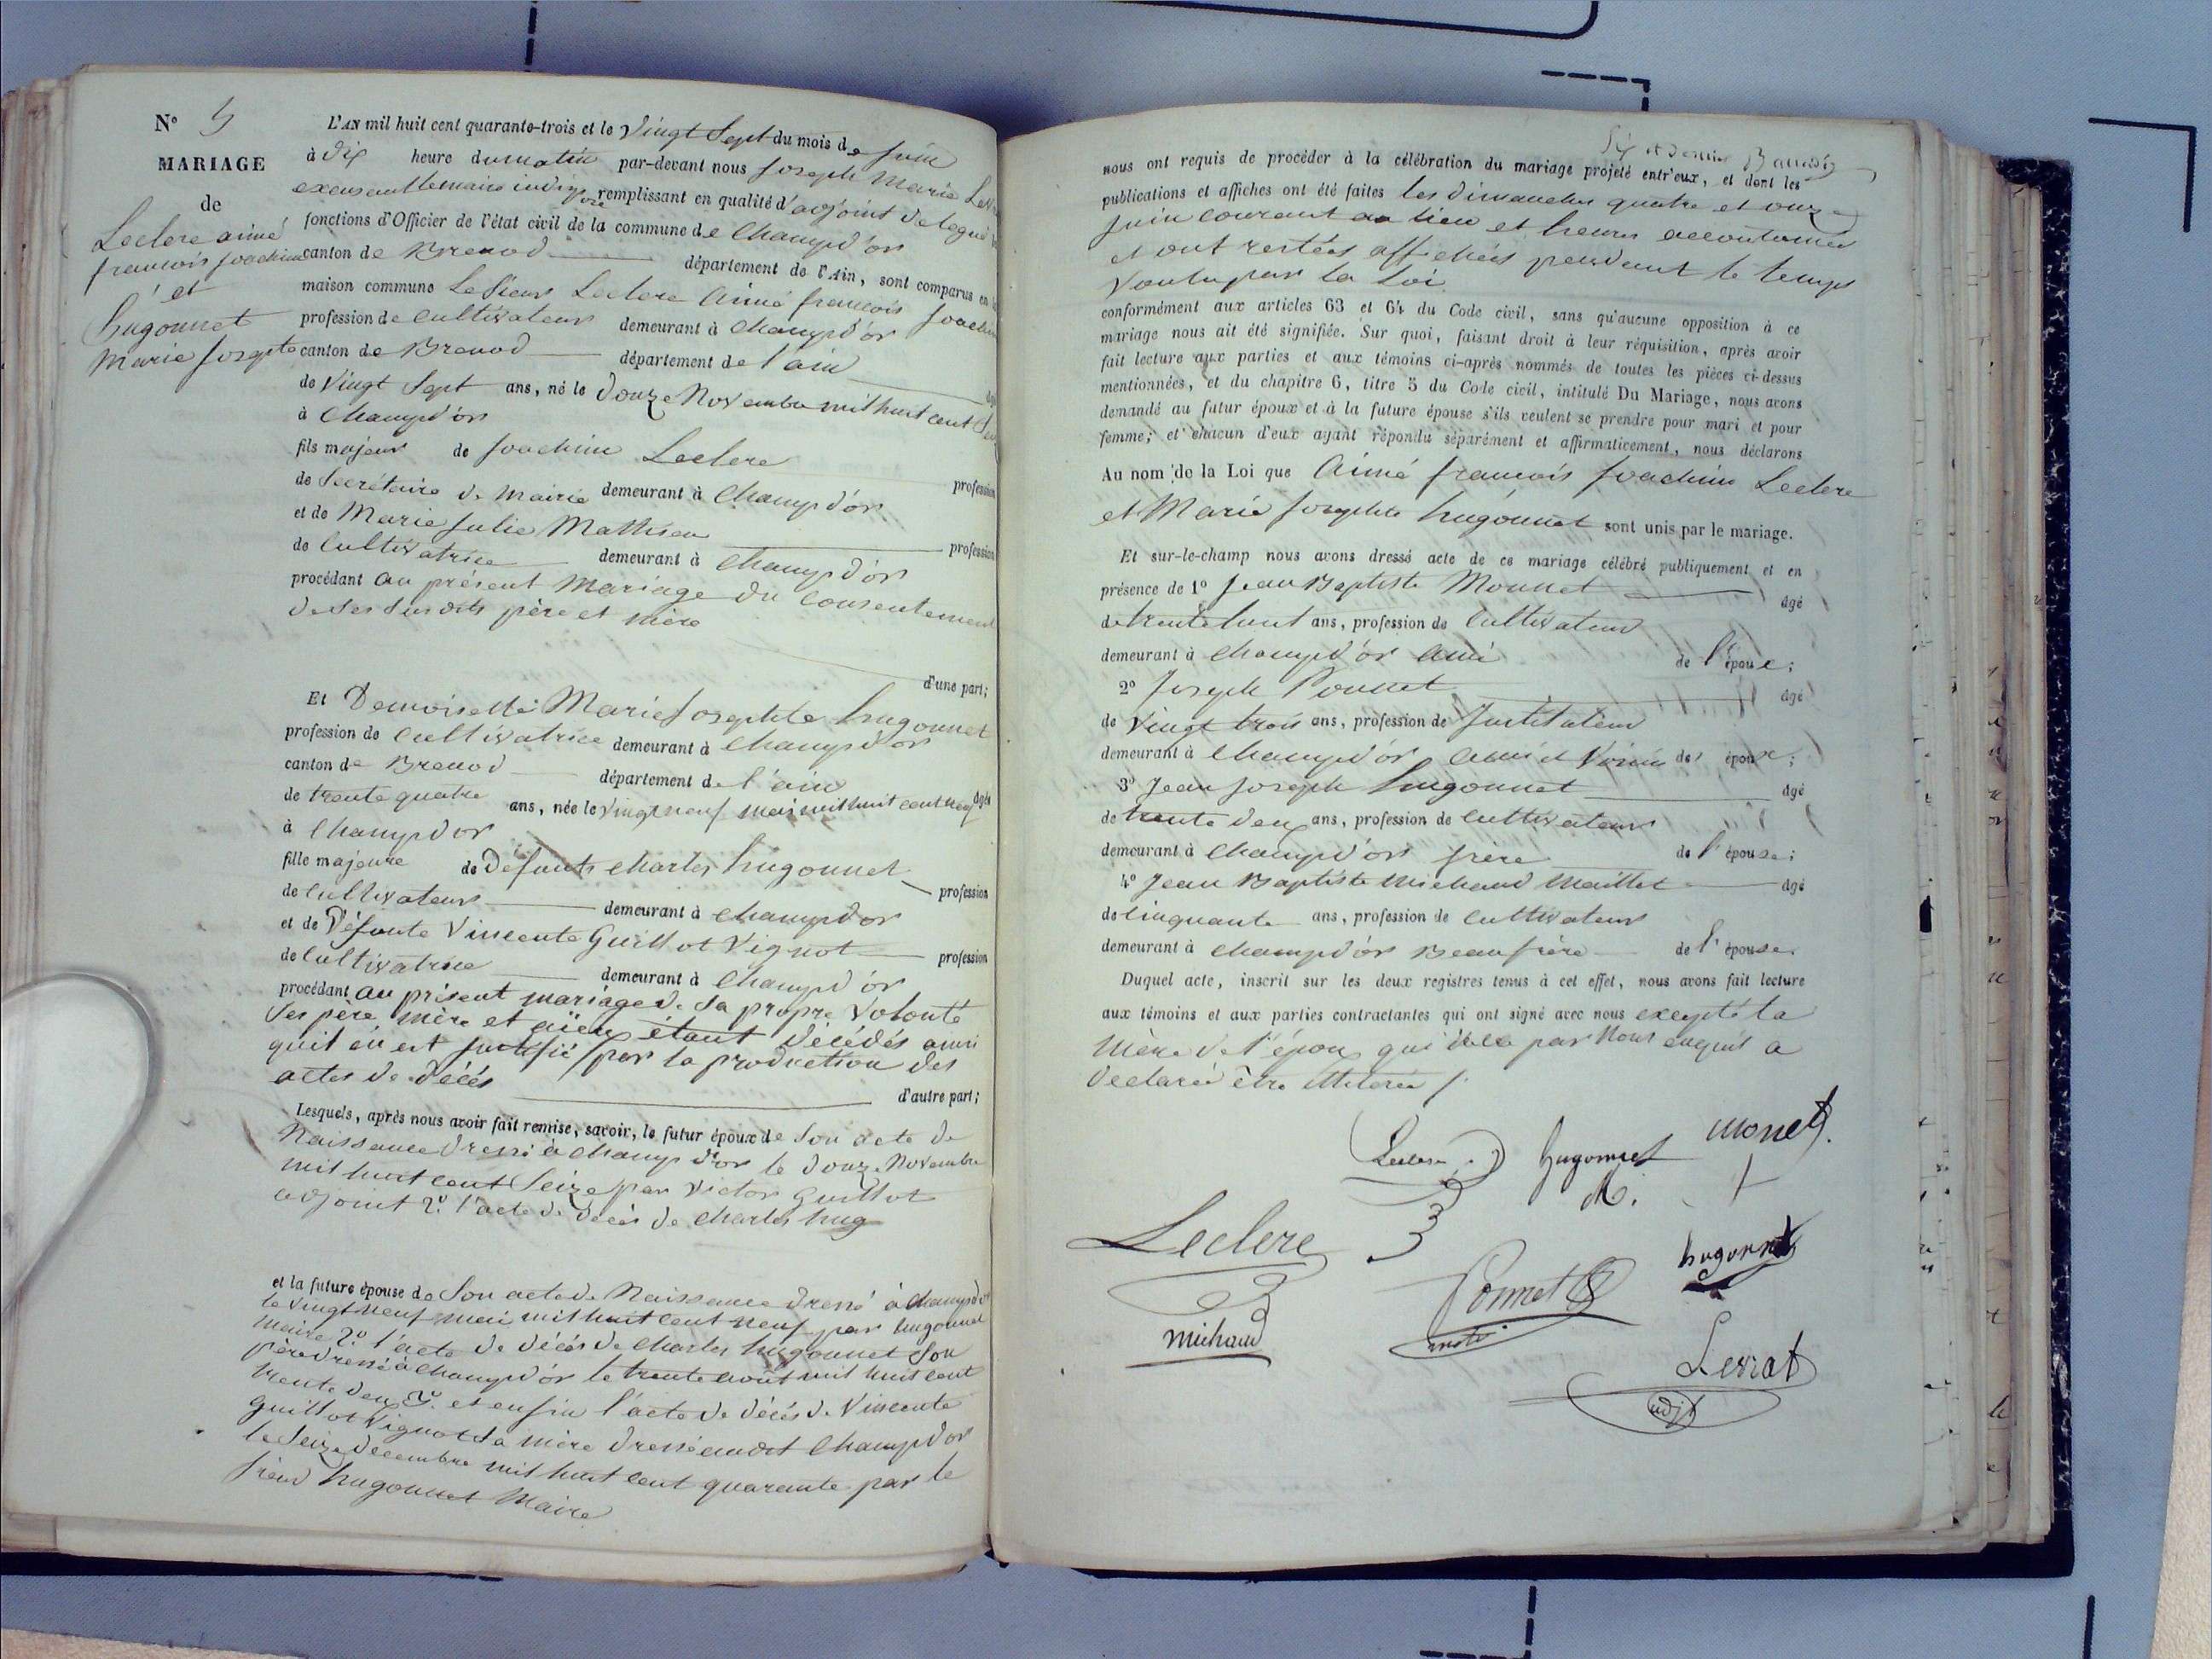 N° 5
MARIAGE
de
Leclere aimé
francois joachim
et
hugonnet
Marie Josephte
L'AN mil huit cent quarante-trois et le Vingt Sept du mois de juin
à dix heure du matin par-devant nous Joseph Marie
remplissant en qualité d'adjoint delegué
fonctions d'Officier de l'état civil de la commune de Champd'or
canton de Brenod département de l'Ain, sont comparus en
maison commune Le sieur Leclere Aimé francois Joachim
profession de Cultivateur demeurant à Champd'or
canton de Brenod département de l'ain
de Vingt Sept ans, né le Douze Novembre mil huit cent
à Champd'or
fils majeur de Joachim Leclere
profession
de Secrétaire de Mairie demeurant à Champd'or
et de Marie Julie Mathieu
profession
de Cultivatrice demeurant à Champd'or
procédant au présent Mariage du Consentement
de ses susdits père et mère
d'une part;
Et Demoiselle Marie Josephte hugonnet
profession de Cultivatrice demeurant à Champd'or
canton de Brenod département de l'ain
âgée
de trente quatre ans, née le Vingt neuf mai mil huit cent neuf
à Champd'or
fille majeure de Defunts Charles hugonnet
profession
de Cultivateur demeurant à Champd'or
et de Défunte Vincente Guillot Vignot
profession
de Cultivatrice demeurant à Champd'or
procédant au présent mariage de sa propre Volonté
Ses pere mère et aïeux étant décédés ainsi
quil en est justifié par la production des
actes de décés
d'autre part;
Lesquels, après nous avoir fait remise, savoir, le futur époux de Son acte de
Naissance dressé à Champ d'or le douze Novembre
mil huit cent Seize par Victor Guillot
adjoint 2° l'acte de décés de Charles hug
et la future épouse de Son acte de Naissance dressé à Champd'or
le Vingt neuf mai mil huit cent neuf par hugonnet
Maire 2° l'acte de décés de Charles hugonnet Son
père dressé à Champd'or le trente août mil huit cent
trente deux 3° et enfin l'acte de décés de Vincente
Guillot Vignot Sa mère dressé audit Champd'or
le Seize decembre mil huit cent quarante par le
Sieur hugonnet Maire
nous ont requis de procéder à la célébration du mariage projeté entr'eux, et dont les
publications et affiches ont été faites les dimanches quatre et onze
Juin courant au lieu et heures accoutumés
et ont restées affichées pendant le temps
Voulu par la Loi
conformément aux articles 63 et 64 du Code civil, sans qu'aucune opposition à ce
mariage nous ait été signifiée. Sur quoi, faisant droit à leur réquisition, après avoir
fait lecture aux parties et aux témoins ci-après nommés de toutes les pièces ci-dessus
mentionnées, et du chapitre 6, titre 5 du Code civil, intitulé Du Mariage, nous avons
demandé au futur époux et à la future épouse s'ils veulent se prendre pour mari et pour
femme; et chacun d'eux ayant répondu séparément et affirmativement, nous déclarons
Au nom de la Loi que Aimé francois Joachim Leclere
et Marie Josephte hugonnet sont unis par le mariage.
Et sur-le-champ nous avons dressé acte de ce mariage célébré publiquement et en
présence de 1° Jean Baptiste Monnet âgé
de trente huit ans, profession de Cultivateur
demeurant à Champd'or ami de l'épouse;
2° Joseph Ponnet âgé
de Vingt trois ans, profession de Instituteur
demeurant à Champd'or ami et Voisin des époux;
3° Jean Joseph hugonnet âgé
de trente deux ans, profession de Cultivateur
demeurant à Champd'or frère de l'épouse;
4° Jean Baptiste Michaud Maillet âgé
de Cinquante ans, profession de Cultivateur
demeurant à Champd'or Beaufrère de l'épouse.
Duquel acte, inscrit sur les deux registres tenus à cet effet, nous avons fait lecture
aux témoins et aux parties contractantes qui ont signé avec nous excepté la
Mère de l'époux qui de ce par Nous enquis a
declaré être illiterée
Leclere hugonnet monet
M.
Leclere
Ponnet
hugonnet
michaud
instr
Levrat
adjt